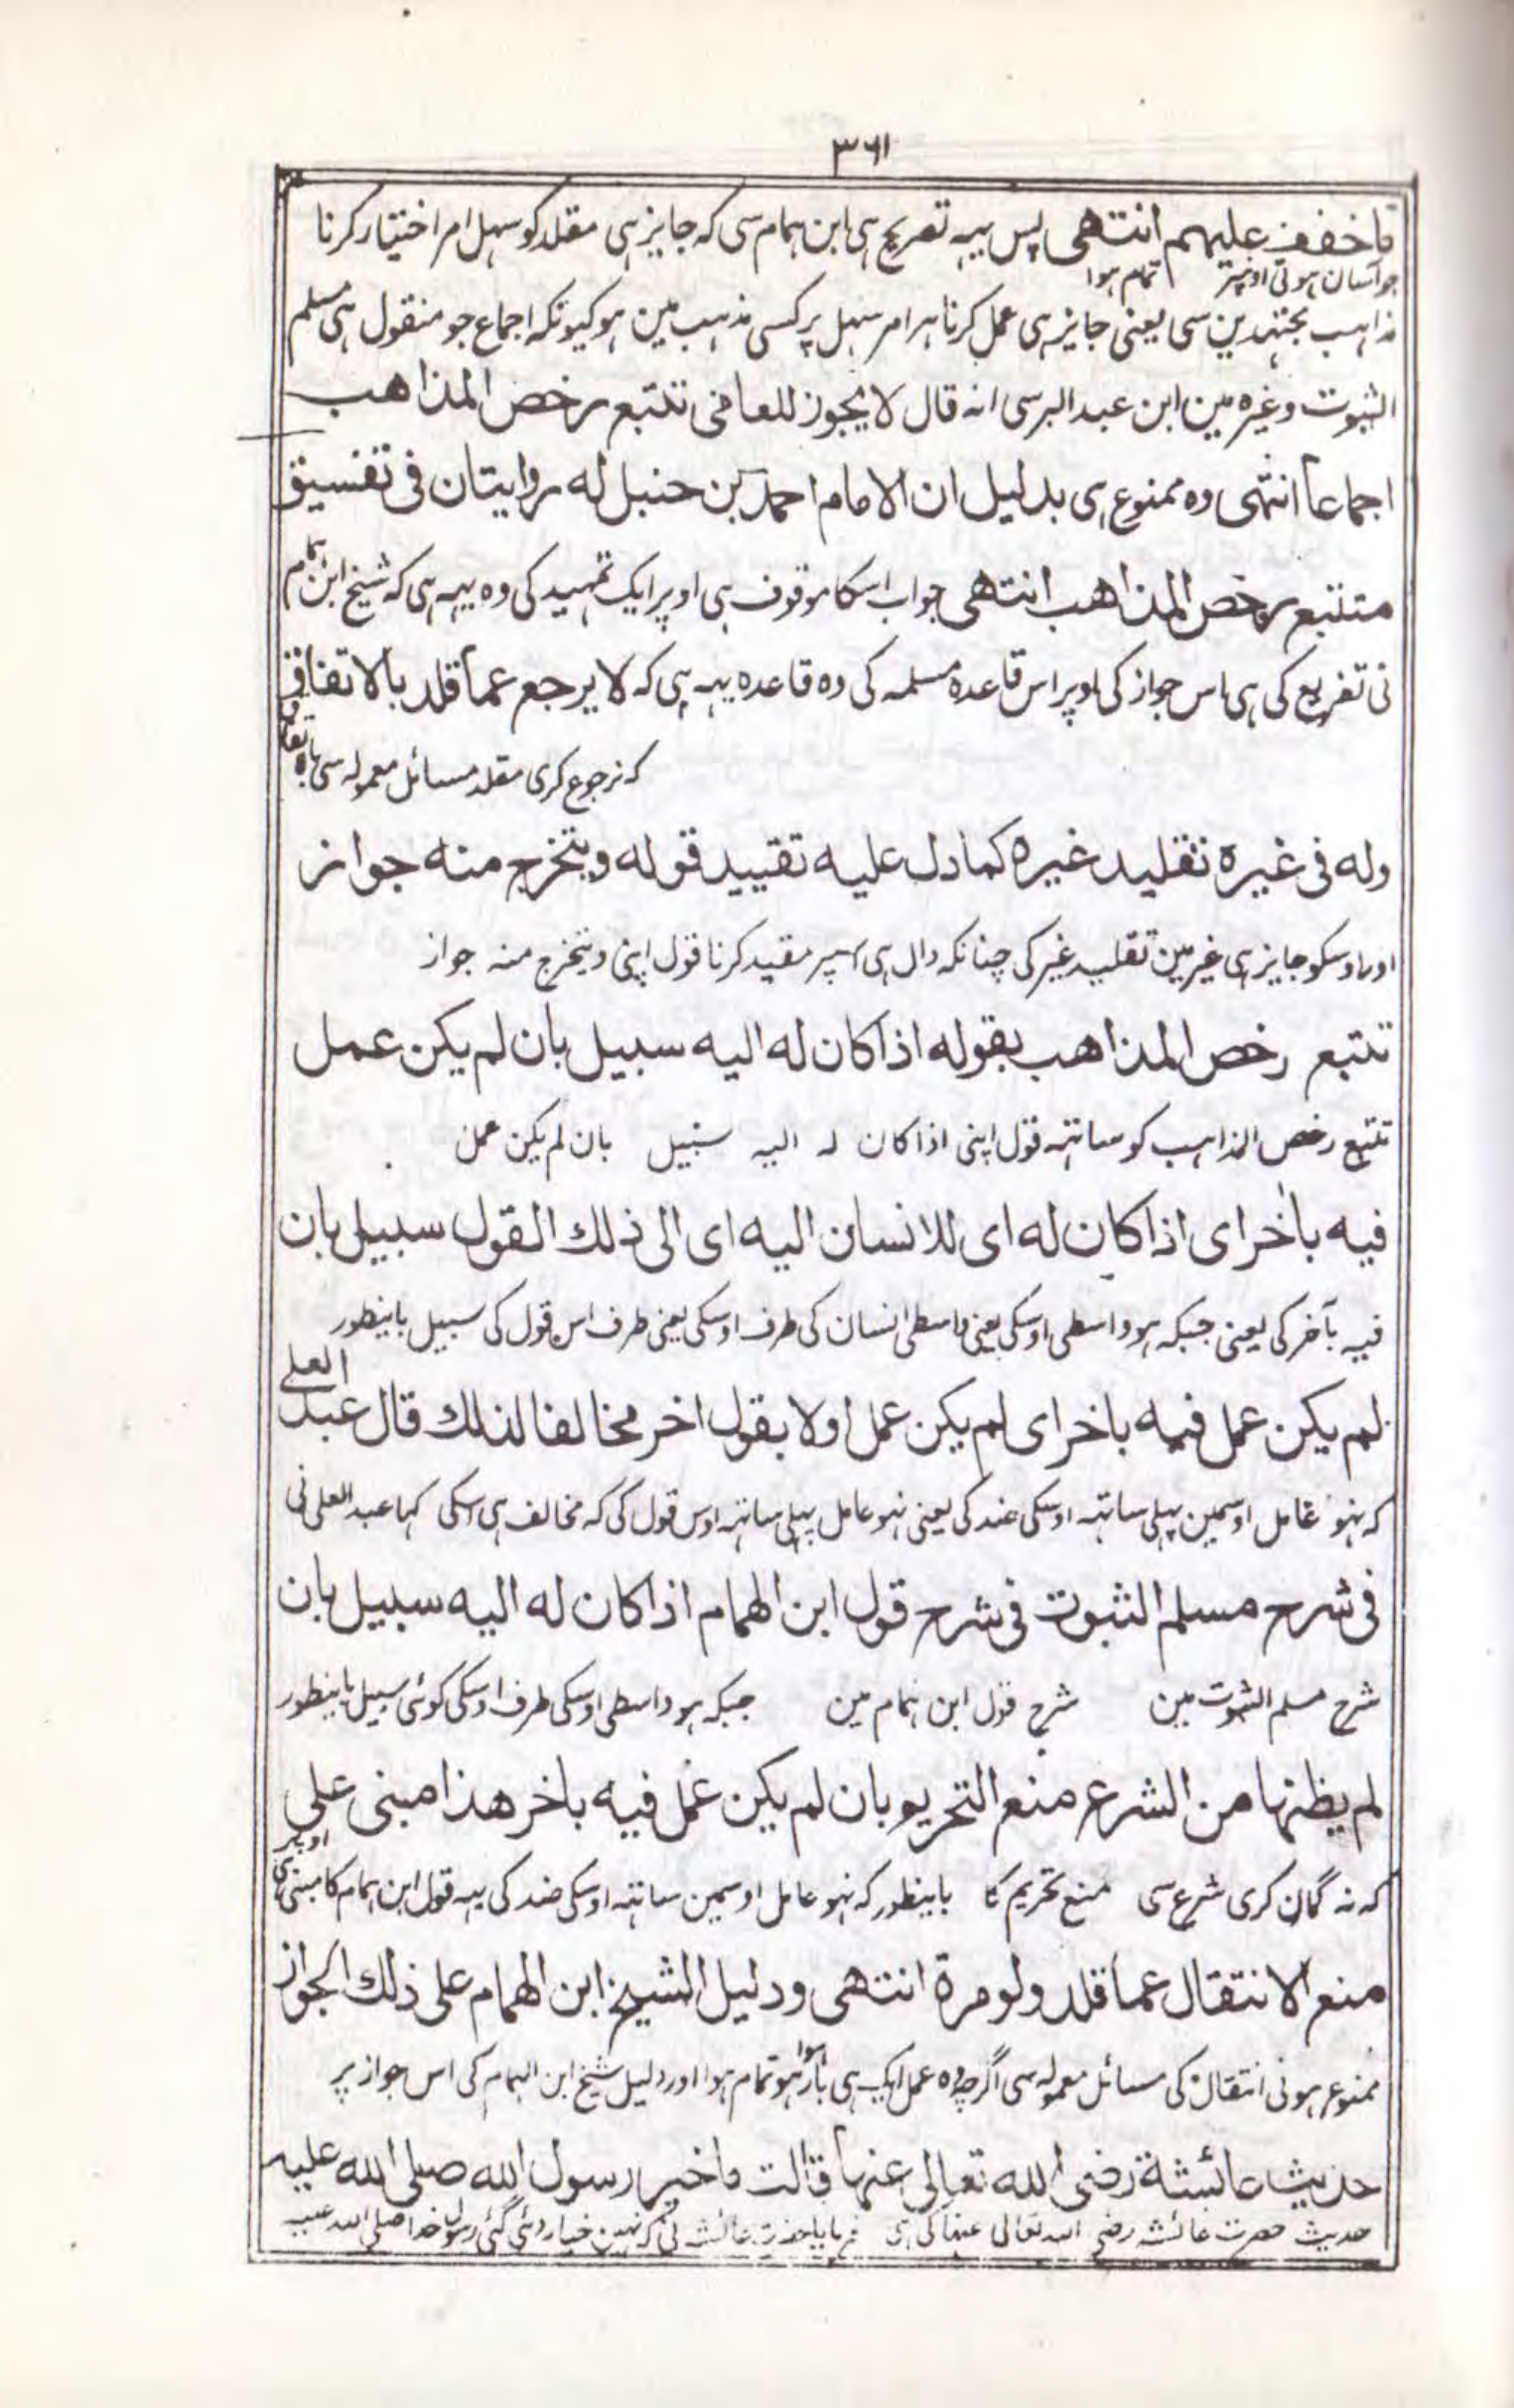 ۳۶۱
ماخفف علیہم انتهی پس یہہ تصریح ہی ابن ہمام سی کہ جایز ہی مقلد کو سہل امر اختیار کرنا
جو آسان ہو تی اوپر تمام ہوا
مذاہب مجتہدین سی یعنی جایز ہی عمل کرنا ہر امر سہل پر کسی مذہب مین ہو کیونکہ اجماع جو منقول ہی مسلم
الثبوت وغیرہ مین ابن عبد البر سی انه قال لا یجوز للعامی تتبع رخص المذاهب
اجماعاً انتہی وہ ممنوع ہی بدلیل ان الامام احمد بن حنبل له روایتان فی تفسیق
متتبع رخص المذاهب انتهی جواب اسکا موقوف ہی اوپر ایک تمہید کی وہ یہہ ہی کہ شیخ ابن ہمام
نی تفریع کی ہی اس جواز کی اوپر اس قاعدہ مسلمہ کی وہ قاعدہ یہہ ہی کہ لا یرجع عما قلد بالاتفاق
کہ نرجوع کری مقلد مسائل معمولہ سی باتفاق
وله فی غیره تقلید غیره کما دل علیه تقیید قوله ویتخرج منه جواز
اور اوسکو جایز ہی غیر مین تقلید غیر کی چنانکہ دال ہی اسپر مقید کرنا قول اپنی ویتخرج منہ جواز
تتبع رخص المذاهب بقوله اذا کان له الیه سبیل بان لم یکن عمل
تتبع رخص المذاہب کو ساتہہ قول اپنی اذا کان لہ الیہ سبیل بان لم یکن عمل
فیه باٰخر ای اذا کان له ای للانسان الیه ای الی ذلك القول سبیل بان
فیہ بآخر کی یعنی جبکہ ہو واسطی اوسکی یعنی واسطی انسان کی طرف اوسکی یعنی طرف اس قول کی سبیل باینطور
لم یکن عمل فیه باخر ای لم یکن عمل اولا بقول اخر مخالفا لذلك قال عبد العلی
کہ نہو عامل اوسمین پہلی ساتہہ اوسکی ضد کی یعنی نہو عامل پہلی ساتہہ اوس قول کی کہ مخالف ہی اسکی کہا عبد العلی نی
فی شرح مسلم الثبوت فی شرح قول ابن الهمام اذا کان له الیه سبیل بان
شرح مسلم الثبوت مین شرح قول ابن ہمام مین جبکہ ہو واسطی اوسکی طرف اوسکی کوئی سبیل باینطور
لم یظنها من الشرع منع التحریو بان لم یکن عمل فیه باخر هذا مبنی علی
کہ نہ گمان کری شرع سی منع تحریم کا باینطور کہ نہو عامل اوسمین ساتہہ اوسکی ضد کی یہہ قول ابن ہمام کا مبنی ہی اوپر
منع الانتقال عما قلد ولو مرة انتهی ودلیل الشیخ ابن الهمام علی ذلك الجواز
ممنوع ہونی انتقال کی مسائل معمولہ سی اگرچہ وہ عمل ایک ہی بار ہوا ہو تمام ہوا اور دلیل شیخ ابن الہمام کی اس جواز پر
حدیث عائشة رضی الله تعالی عنها قالت ماخیر رسول الله صلی الله علیه
حدیث حضرت عائشہ رضی اللہ تعالی عنہا کی ہی فرمایا حضرت عائشہ نی کہ نہین خیار دئی گئی رسول خدا صلی اللہ علیہ